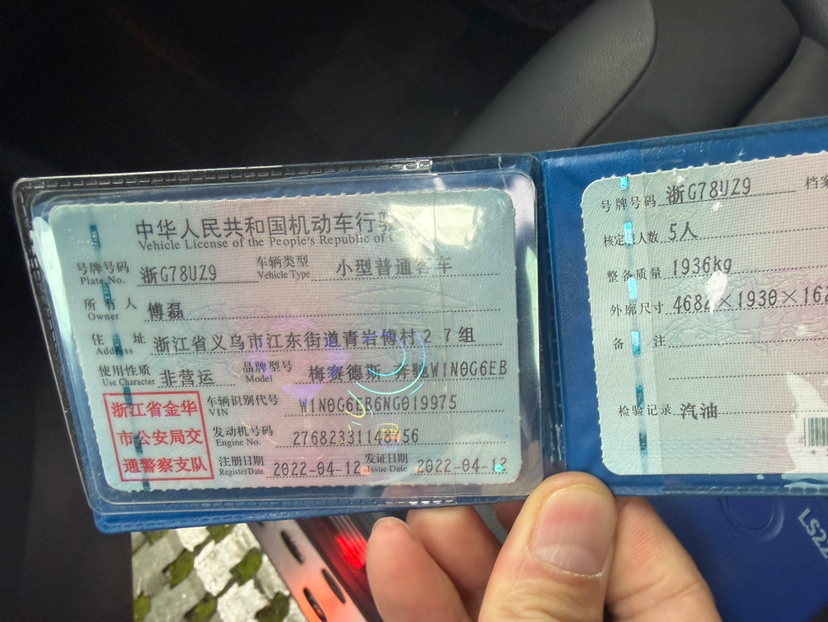 中华人民共和国机动车行驶
Vehicle License of the People's Republic of C
号牌号码 浙G78UZ9 车辆类型 小型普通客车
Plate No. Vehicle Type
所有人 傅磊
Owner
住址 浙江省义乌市江东街道青岩傅村27组
Address
使用性质 非营运 品牌型号 梅赛德斯-奔驰W1N0G6EB
Use Character Model
浙江省金华
市公安局交
通警察支队
车辆识别代号
VIN
发动机号码 27682331148756
Engine No.
注册日期 2022-04-12 发证日期 2022-04-12
Register Date Issue Date
号牌号码 浙G78UZ9 档案
核定载人数 5人
整备质量 1936kg
外廓尺寸 4682×1930×162
备注
检验记录 汽油
LS22